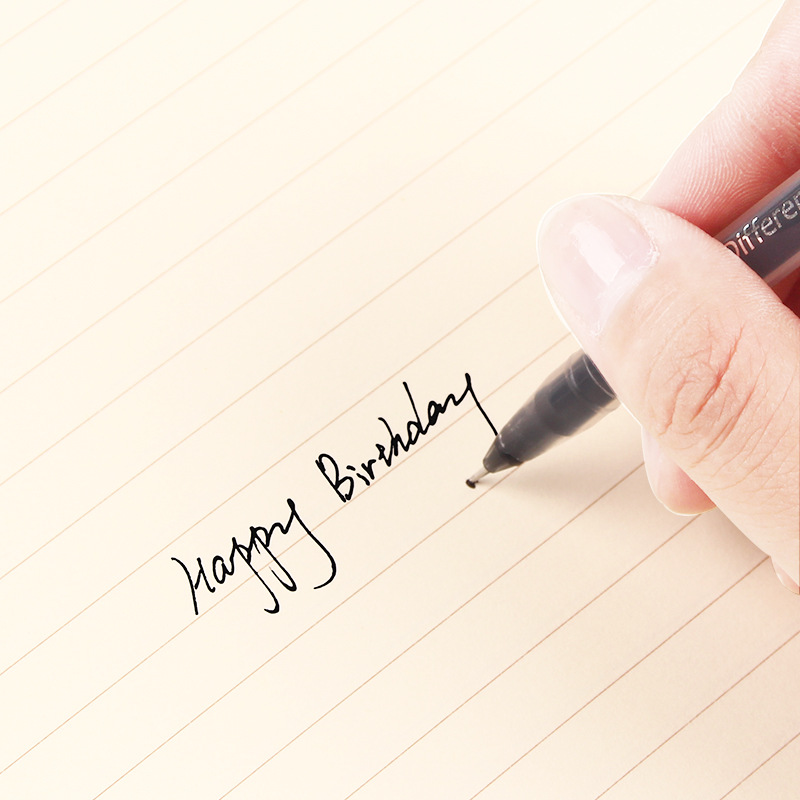 Happy Birthday
Differen